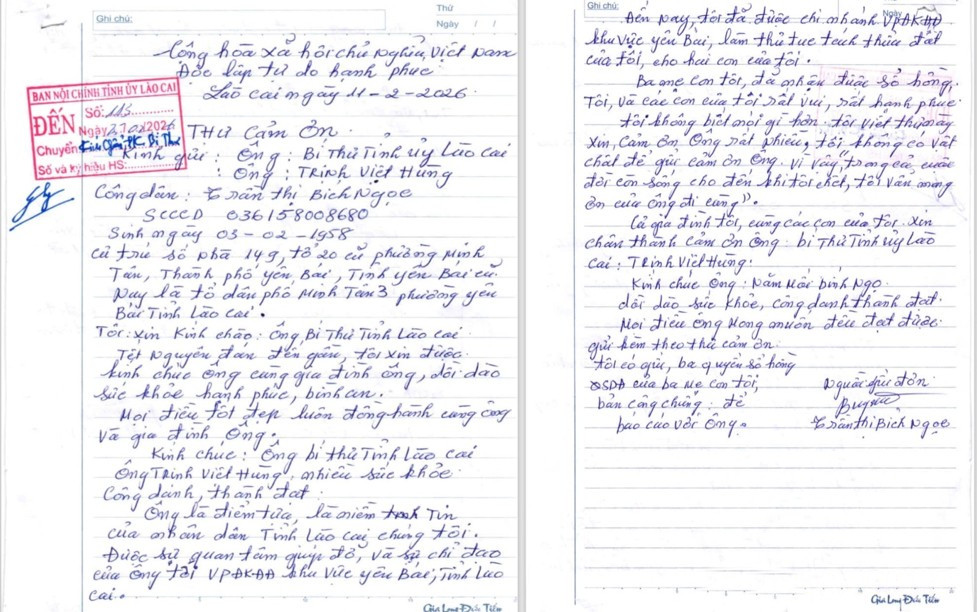 Ghi chú:
Thứ
Ngày / /
Cộng hòa xã hội chủ nghĩa, Việt Nam
Độc lập tự do hạnh phúc
Lào cai ngày 11-2-2026
BAN NỘI CHÍNH TỈNH ỦY LÀO CAI
ĐẾN
Số: 113
Ngày
Chuyển
Số và ký hiệu HS:
THƯ CẢM ƠN.
Kính gửi: Ông: Bí Thư Tỉnh ủy Lào cai
: Ông: TRịnh Việt Hùng
Công dân: Trần thị Bích Ngọc
SCCCD 036158008680
Sinh ngày 03-02-1958
cư trú số nhà 149, tổ 20 cũ phường Minh
Tân, Thành phố yên Bái, Tỉnh yên Bái cũ.
Nay là tổ dân phố Minh Tân 3 phường yên
Bái Tỉnh Lào cai.
Tôi: xin Kính chào: Ông, Bí Thư Tỉnh Lào cai.
Tết Nguyên đán đến gần, tôi xin được
kính chúc Ông cùng gia đình ông, dồi dào
sức khỏe hạnh phúc, bình an.
Mọi điều tốt đẹp luôn đồng hành cùng ông
và gia đình Ông.
Kính chúc: Ông bí thư Tỉnh Lào cai
Ông TRịnh Việt Hùng, nhiều sức khỏe
Công danh, thành đạt.
Ông là điểm tựa, là niềm Tin
của nhân dân Tỉnh Lào cai, chúng tôi.
Được sự quan tâm giúp đỡ, và sự chỉ đạo
của Ông tới VPĐKĐĐ khu vực yên Bái, Tỉnh Lào
cai.
Giá Long Điểu Tiên
Ghi chú:
Ngày
Đến nay, tôi đã được chi nhánh VPĐKĐĐ
khu vực yên Bái, làm thủ tục tách thửa đất
của tôi, cho hai con của tôi.
Ba mẹ con tôi, đã nhận được sổ hồng.
Tôi, và các con của tôi rất vui, rất hạnh phúc
tôi không biết nói gì hơn. tôi viết thư này
xin, Cảm ơn, Ông rất Nhiều, tôi không có vật
chất để gửi cảm ơn Ông. vì vậy, trong cả cuộc
đời còn sống cho đến khi tôi chết, tôi vẫn mang
ơn của Ông đi cùng).
Cả gia đình tôi, cùng các con của tôi. xin
chân thành cảm ơn Ông: bí Thư Tỉnh ủy Lào
Cai: TRịnh Việt Hùng.
Kính chúc Ông: Năm Mới bính Ngọ.
dồi dào sức khỏe, công danh thành đạt.
Mọi điều ông Mong muốn đều đạt được
gửi kèm theo thư cảm ơn.
tôi có gửi, ba quyển sổ hồng
QSDĐ của ba Mẹ con tôi,
bản công chứng: để
báo cáo với Ông.
Người gửi đơn
Trần Thị Bích Ngọc